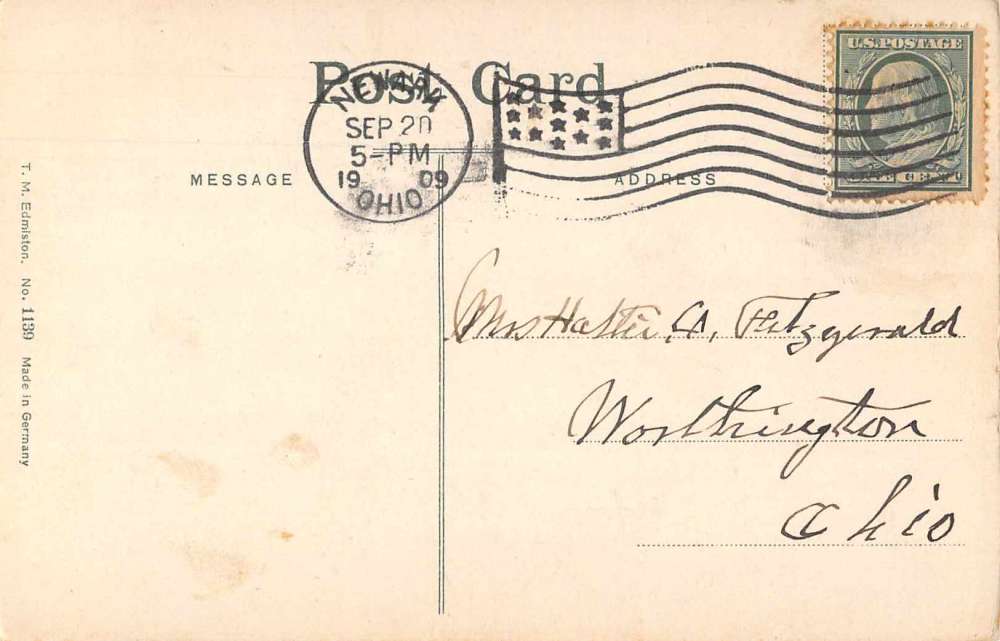 Post Card
NEWARK
SEP 20
5-PM
1909
OHIO
U.S. POSTAGE
ONE CENT
MESSAGE
ADDRESS
Mrs Hattie A, Fitzgerald
Worthington
Ohio
T. M. Edmiston. No. 1139 Made in Germany